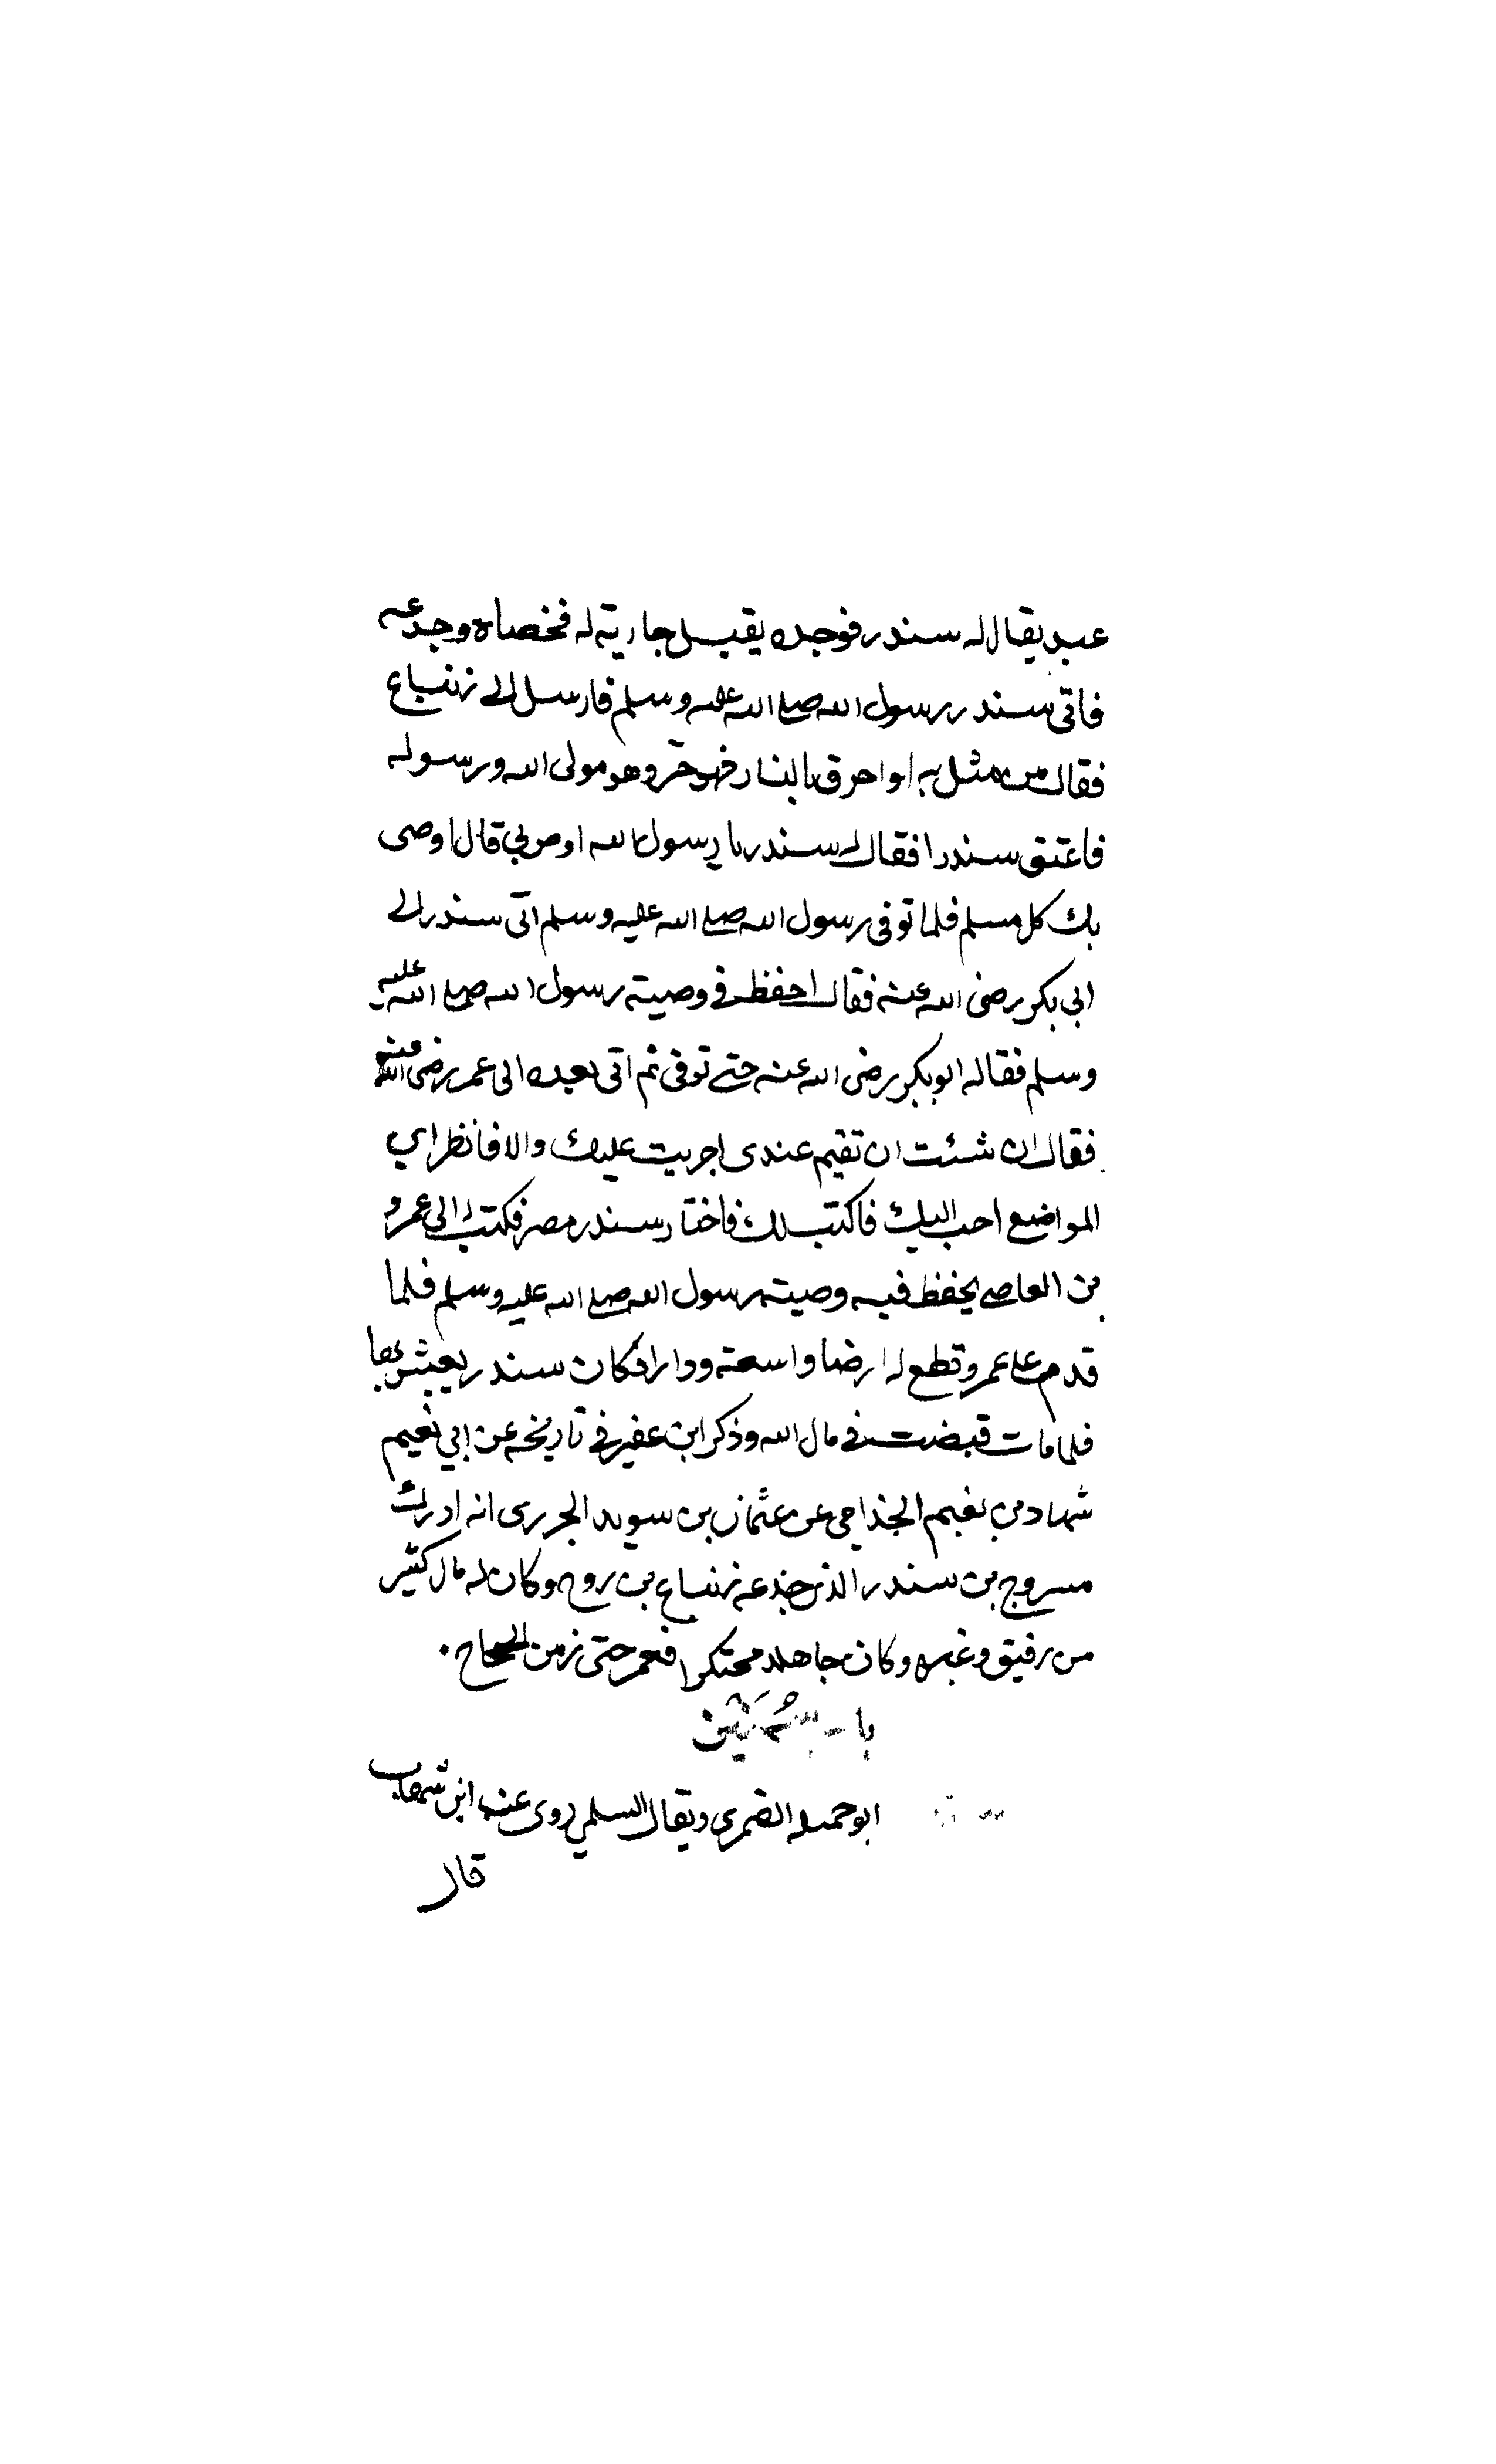 عبد يقال له سندر فوجده يقبل جارية له فخصاه وجدعه
فاتى سندر رسول الله صلى الله عليه وسلم فارسل الى زنباع
فقال من مثل به او احرق بالنار فهو حر وهو مولى الله ورسوله
فاعتق سندرا فقال له سندر يا رسول الله اوص بي قال اوصى
بك كل مسلم فلما توفى رسول الله صلى الله عليه وسلم اتى سندر الى
ابي بكر رضى الله عنه فقال احفظ في وصية رسول الله صلى الله عليه
وسلم فقاله ابو بكر رضى الله عنه حتى توفى ثم اتى بعده الى عمر رضى الله عنه
فقال ان شئت ان تقيم عندى اجريت عليك والا فانظر اي
المواضع احب اليك فاكتب لك فاختار سندر مصر فكتب له الى عمرو
بن العاصى يحفظ فيه وصية رسول الله صلى الله عليه وسلم فلما
قدم على عمرو قطع له ارضا واسعة ودارا فكان سندر يعيش بها
فلما مات قبضت في مال الله وذكر ابن عفير في تاريخه عن ابي نعيم
سماد بن نعيم الجذامي عن عثمان بن سويد الجررى انه ادرك
مسروح بن سندر الذى جدعه زنباع بن روح وكان له مال كثير
من رقيق وغيره وكان جاهلا محتكرا فعمر حتى زمن الحجاج .
باب سنين
ابو جميله الضمرى ويقال السلمي روى عنه ابن شهاب
قال